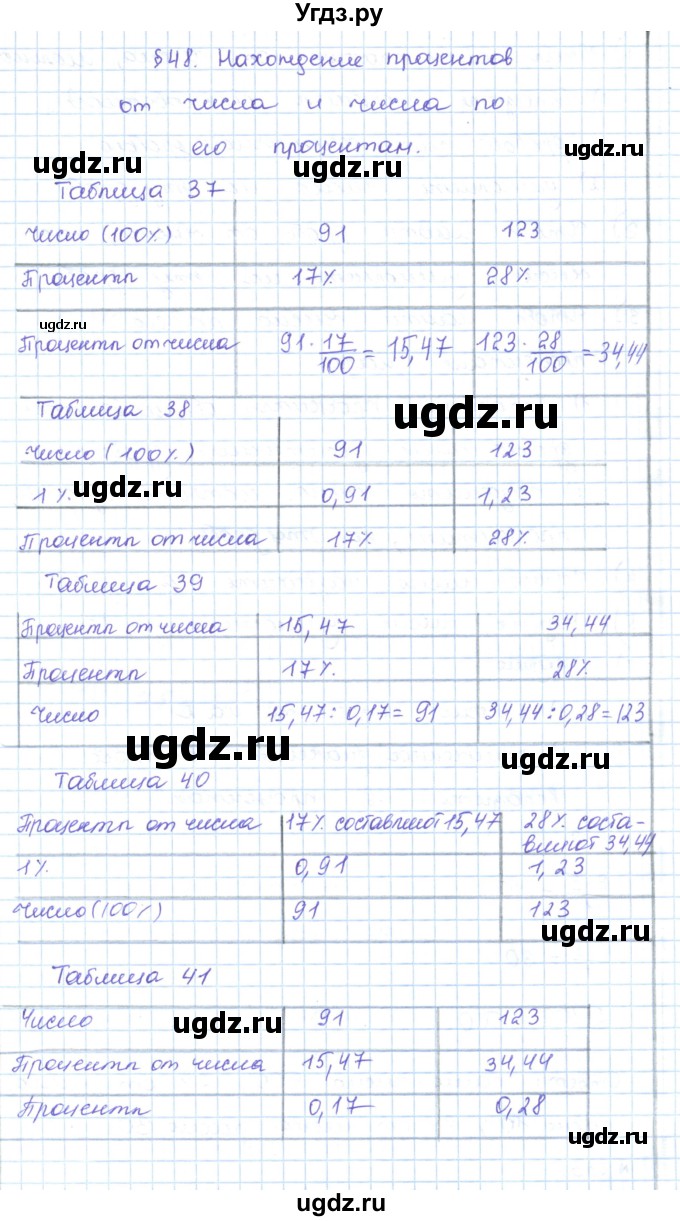 Угдз.ру
§48. Нахождение процентов
от числа и числа по
его процентам.
ugdz.ru ugdz.ru ugdz.ru
Таблица 37
Число (100%) 91 123
Проценты 17% 28%
ugdz.ru
Проценты от числа 91 · 17/100 = 15,47 123 · 28/100 = 34,44
Таблица 38 ugdz.ru
Число (100%) 91 123
1% ugdz.ru 0,91 1,23
Проценты от числа 17% 28%
Таблица 39
Проценты от числа 15,47 34,44
Проценты 17% 28%
Число 15,47 : 0,17 = 91 34,44 : 0,28 = 123
ugdz.ru ugdz.ru
Таблица 40
Проценты от числа 17% составляют 15,47 28% соста-
вляют 34,44
1% 0,91 1,23
Число (100%) 91 123
ugdz.ru
Таблица 41
Число ugdz.ru 91 123
Проценты от числа 15,47 34,44
Проценты 0,17 0,28
ugdz.ru
ugdz.ru